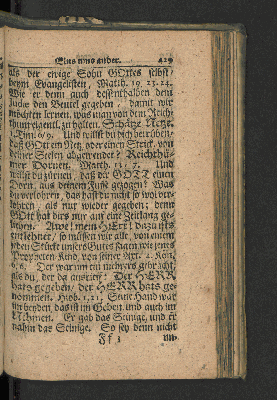 Eins umo ander. 429
als der ewige Sohn GOttes selbst
beym Evangelisten, Matth. 19. 23. 24.
Wie er denn auch dessenthalben dem
Judæ den Beutel gegeben, damit wir
möchten lernen, was man von dem Reich-
thum eigentl. zu halten. Schätze Netze.
1. Tim. 6/9. Und willst du dich betrüben,
daß GOtt ein Netz oder einen Strick, von
deiner Seelen abgewendet? Reichthü-
mer Dornen. Matth. 13. 7. Und
willst du zürnen, daß der GOTT einen
Dorn, aus deinem Fusse gezogen? Was
du verlohren, das hast du nicht so wol ver-
lohren, als nur wieder gegeben; denn
GOtt hat dirs nur auf eine Zeitlang ge-
liehen. Awe! mein HErr! dazu ists
entlehnet/ so müssen wir alle, von einem
jeden Stücke unsers Gutes sagen wie jenes
Propheten Kind, von seiner Axt. 2. Kön.
6. 6. Der war um ein mehrers gebracht,
als du, der da ausrief: Der HERR
hats gegeben, der HERR hats ge-
nommen. Hiob. 1, 21. Seine Hand war
im beyden, das ist im Geben und auch im
Nehmen. Er gab das Seinige, und er
nahm das Seinige. So sey denn nicht
Ff 3